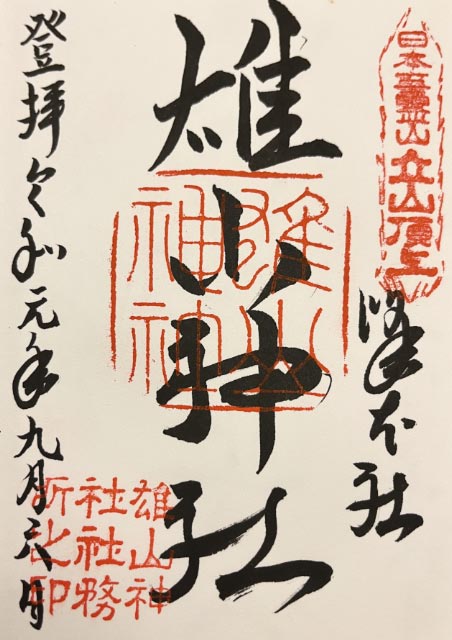 日本靈山
立山頂上
峰本社
雄山神社
雄山
神社
登拝 令和元年九月六日
雄山神
社社務
所之印